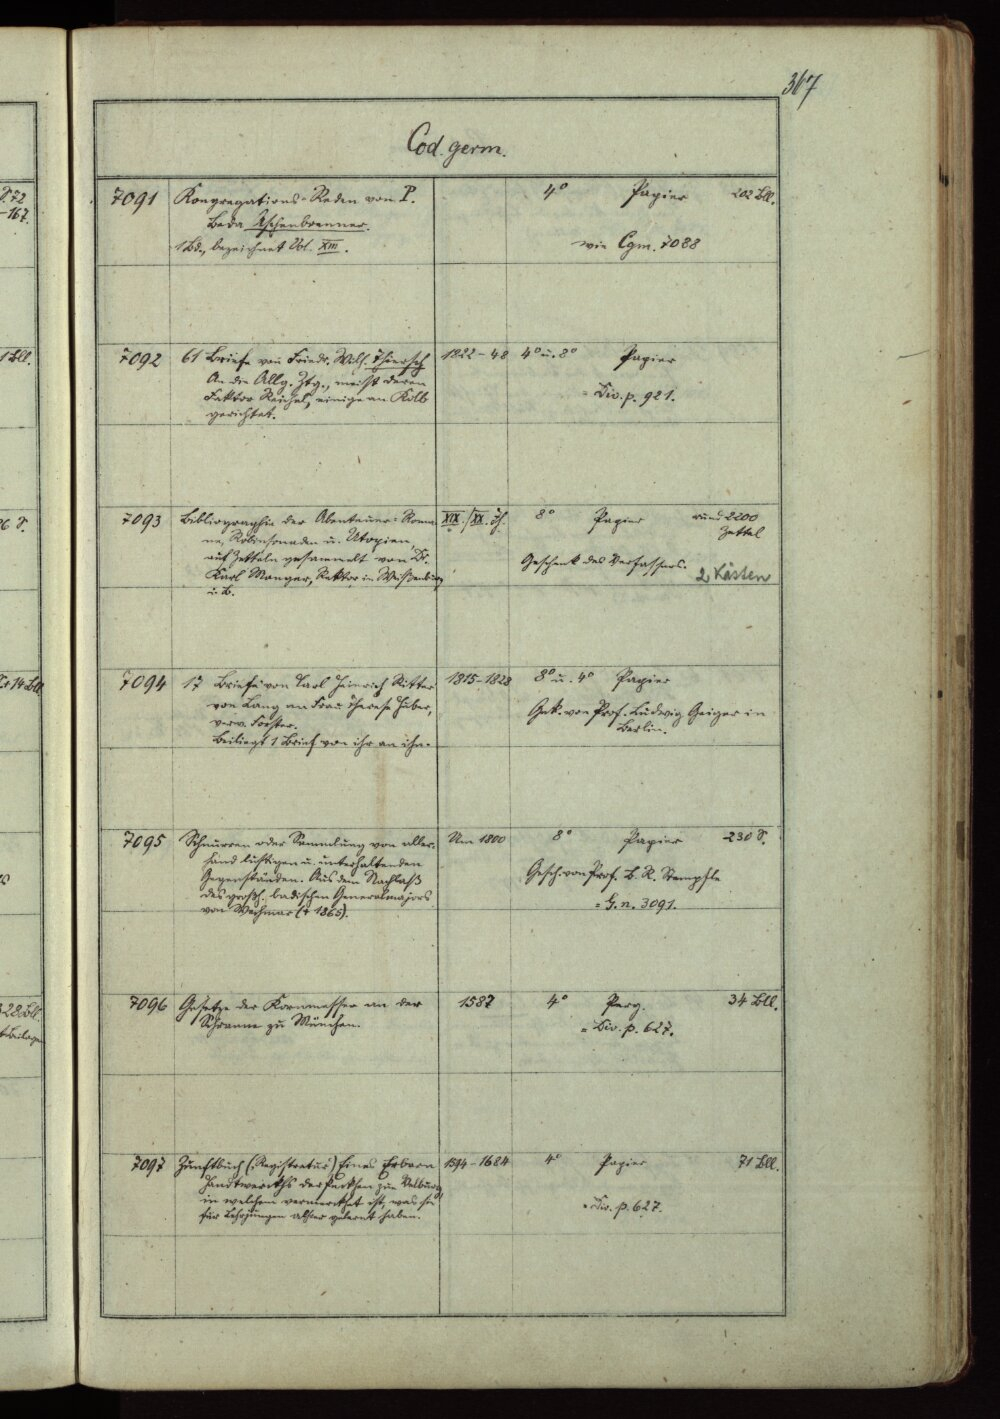 367
Cod. germ.
7091 Kongregations-Reden von P. 4° Papier 202 Bll.
Beda Aschenbrenner.
1 Bd., bezeichnet Vol. XIII. wie Cgm. 7088
7092 61 Briefe von Friedr. Wilh. Thiersch 1822-48 4° u. 8° Papier
An die Allg. Ztg., meist deren = Div. p. 921.
Faktor Reichel, einige an Kolb
gerichtet.
7093 Bibliographie der Abenteuer-Roma- XIX./XX. Jh. 8° Papier rund 2200
ne, Robinsonaden u. Utopien, Zettel
auf Zetteln gesammelt von Dr. Geschenk des Verfassers.
Karl Manger, Rektor in Weißenburg 2 Kästen
i. B.
7094 17 Briefe von Carl Heinrich Ritter 1815-1828 8° u. 4° Papier
von Lang an Frau Therese Huber, Gek. von Prof. Ludwig Geiger in
verw. Forster. Berlin.
Beiliegt 1 Brief von ihr an ihn.
7095 Schnurren oder Sammlung von aller- Um 1800 8° Papier 230 S.
hand lustigen u. unterhaltenden
Gegenständen. Aus dem Nachlaß Gesch. von Prof. B. R. Stempfle
des großh. badischen Generalmajors
von Wechmar († 1865). = G. n. 3091.
7096 Gesetze der Kornmesser an der 1587 4° Perg. 34 Bll.
Schranne zu München. = Div. p. 627.
7097 Zunftbuch (Registratur) Eines Erbarn 1594-1684 4° Papier 71 Bll.
Handtwerckhs der Peckhen zue Velburg,
in welchem vermerckhet ist, was sie = Div. p. 627.
für Lehrjungen alhier gelernt haben.
S. 72
-167.
1 Bll.
26 S.
14 Bll
28 Bll.
+ Beilagen